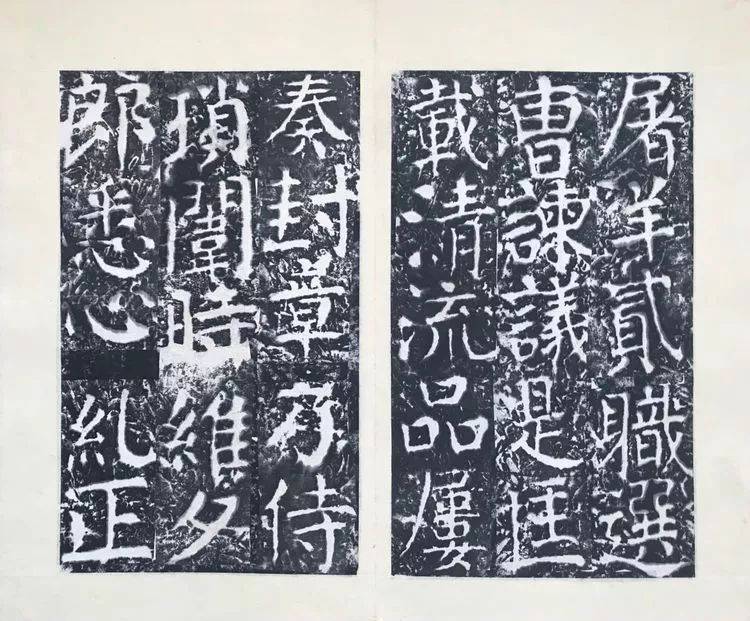 屠羊貳職選
曹諫議是匡
載清流品屢
奏封章乃侍
瑣闈時維夕
郎悉心糺正